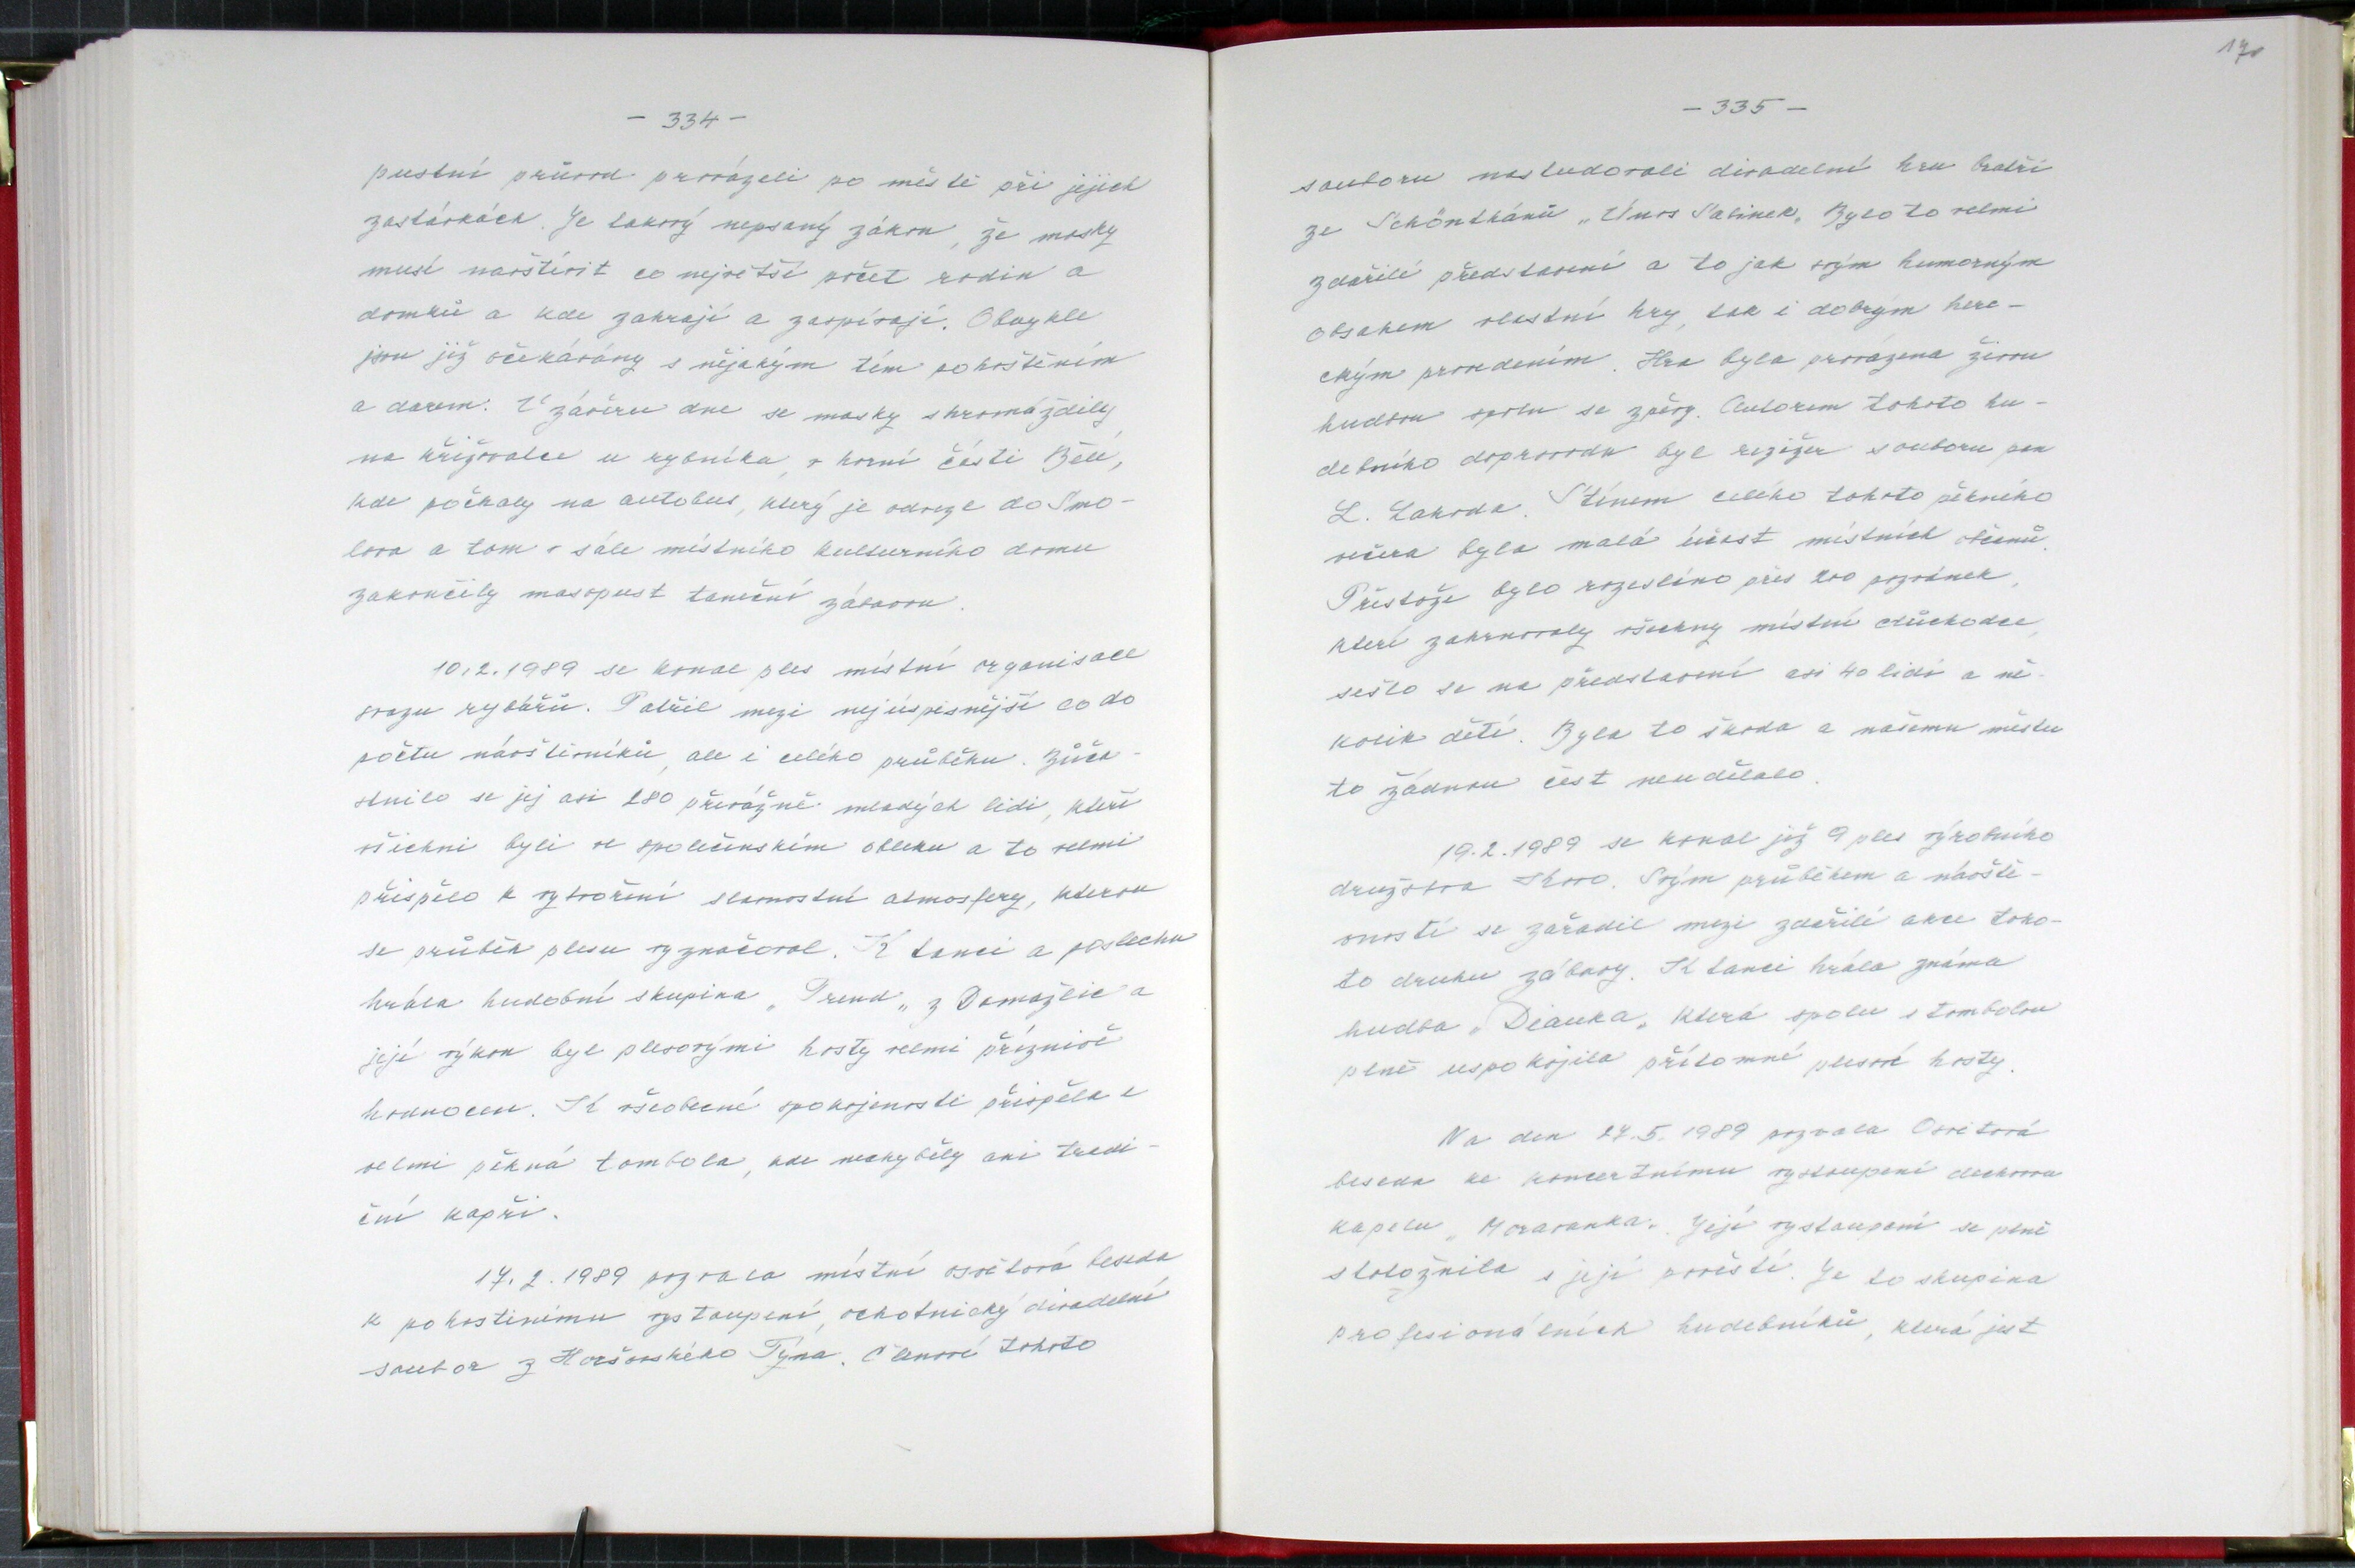 - 334 -
pustní průvod provázeli po městě při jejich
zastávkách. Je takový nepsaný zákon, že masky
musí navštívit co největší počet rodin a
domků a kde zahrají a zaspívají. Obvykle
jsou již očekávány s nějakým tím pohoštěním
a darem. V závěru dne se masky shromáždily
na křižovatce u rybníka, v horní části Bělé,
kde počkaly na autobus, který je odvezl do Smo-
lova a tam v sále místního kulturního domu
zakončily masopust taneční zábavou.
10.2.1989 se konal ples místní organisace
svazu rybářů. Patřil mezi nejúspěšnější co do
počtu návštěvníků, ale i celého průběhu. Zůča-
stnilo se jej asi 280 převážně mladých lidi, kteří
všichni byli ve společenském obleku a to velmi
přispělo k vytvoření slavnostní atmosfery, kterou
se průběh plesu vyznačoval. K tanci a poslechu
hrála hudobní skupina „Trend„ z Domažlic a
její výkon byl plesovými hosty velmi příznivě
hodnocen. K všeobecné spokojenosti přispěla i
velmi pěkná tombola, kde nechyběly ani tradi-
ční kapři.
17.2.1989 pozvala místní osvětová beseda
k pohostinímu vystoupení, ochotnický divadelní
soubor z Horšovského Týna. Členové tohoto
170
- 335 -
souboru nastudovali divadelní hru bratří
ze Schönthánů „Únos Sabinek„ Bylo to velmi
zdařilé představení a to jak svým humorným
obsahem vlastní hry, tak i dobrým here-
ckým provedením. Hra byla provázena živou
hudbou spolu se zpěvy. Autorem tohoto hu-
debního doprovodu byl režižer souboru pan
L. Lahoda. Stínem celého tohoto pěkného
večera byla malá účast místních občanů.
Přestože bylo rozesláno přes 200 pozvánek,
které zahrnovaly všechny místní důchodce,
sešlo se na představení asi 40 lidí a ně-
kolik dětí. Byla to škoda a našemu městu
to žádnou čest neudělalo.
19.2.1989 se konal již 9 ples výrobního
družstva Kovo. Svým průběhem a návště-
vností se zařadil mezi zdařilé akce toho-
to druhu zábavy. K tanci hrála známa
hudba „Dianka„ která spolu s tombolou
plně uspokojila přítomné plesové hosty.
Na den 27.5.1989 pozvala Osvětová
beseda ke koncertnímu vystoupení dechovou
kapelu „Moravanka„. Její vystoupení se plně
stotožnila s její pověstí. Je to skupina
profesionálních hudebníků, která jest